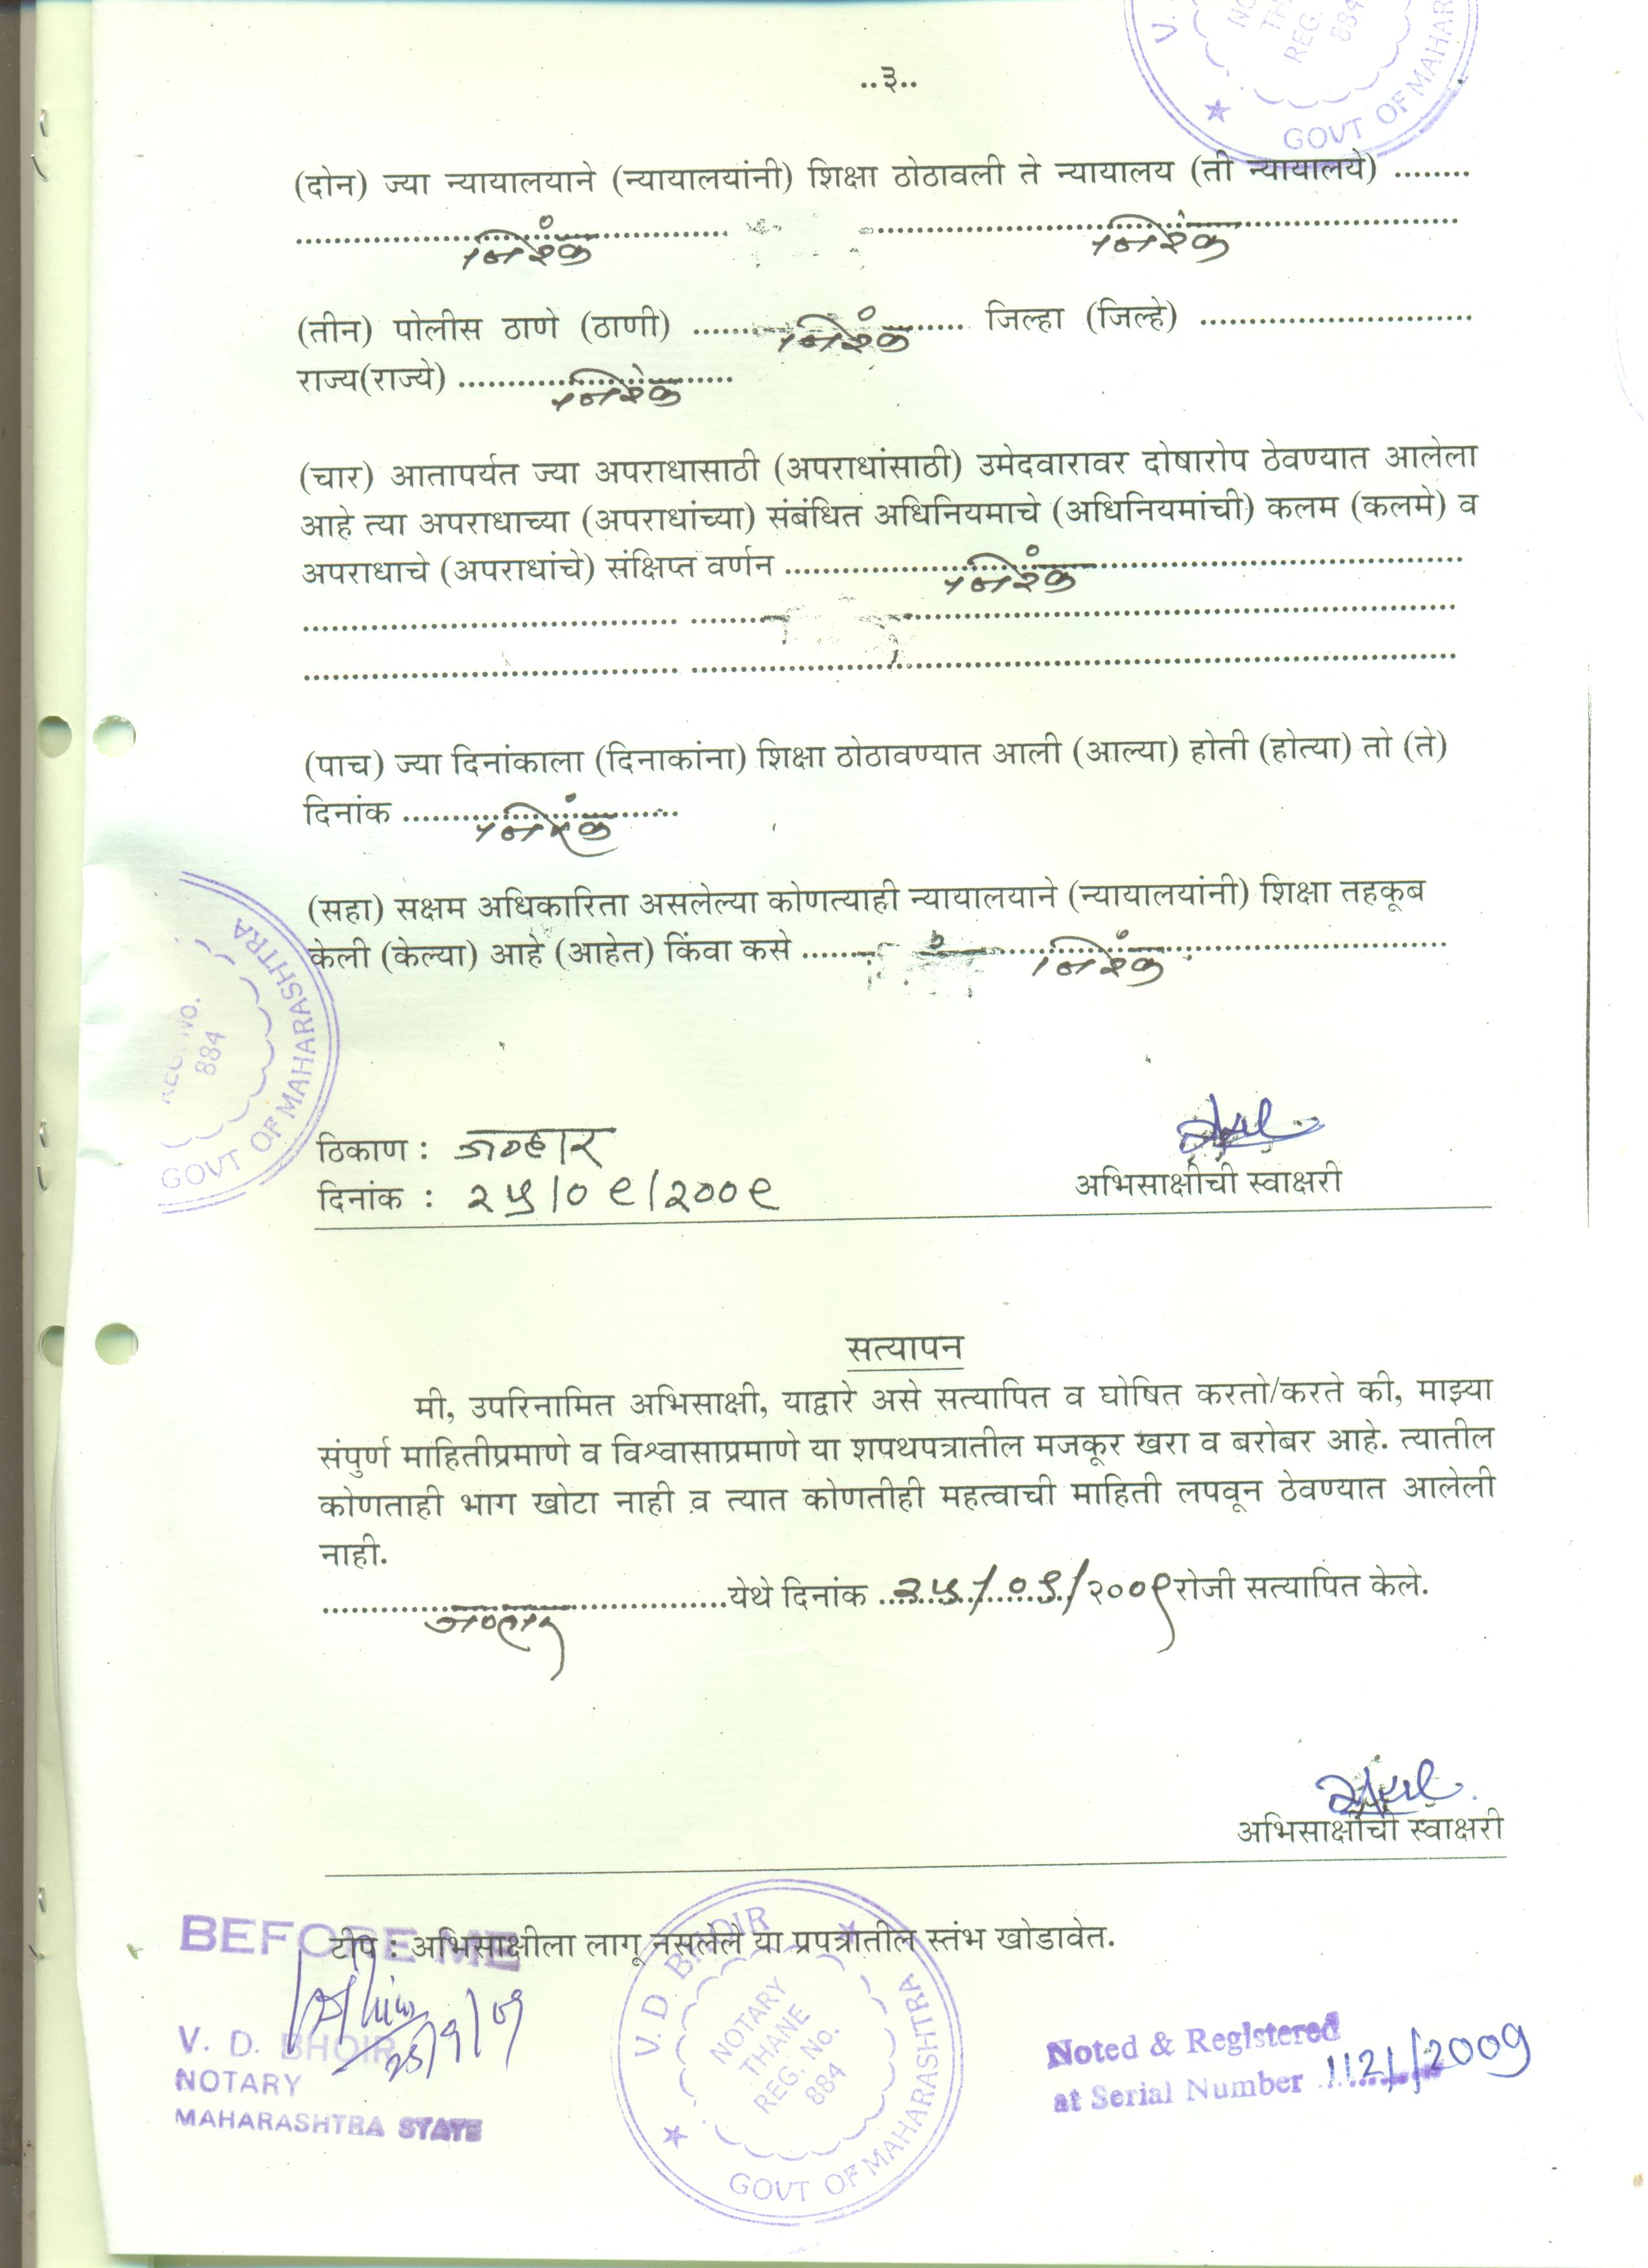 V.
NO
TH
REG.
884
GOVT OF MAHAR
..३..
(दोन) ज्या न्यायालयाने (न्यायालयांनी) शिक्षा ठोठावली ते न्यायालय (ती न्यायालये) ........
निरंक निरंक
(तीन) पोलीस ठाणे (ठाणी) ........ निरंक ........ जिल्हा (जिल्हे) ........
राज्य(राज्ये) ........ निरंक ........
(चार) आतापर्यत ज्या अपराधासाठी (अपराधांसाठी) उमेदवारावर दोषारोप ठेवण्यात आलेला
आहे त्या अपराधाच्या (अपराधांच्या) संबंधित अधिनियमाचे (अधिनियमांची) कलम (कलमे) व
अपराधाचे (अपराधांचे) संक्षिप्त वर्णन ........ निरंक ........
(पाच) ज्या दिनांकाला (दिनाकांना) शिक्षा ठोठावण्यात आली (आल्या) होती (होत्या) तो (ते)
दिनांक ........ निरंक ........
(सहा) सक्षम अधिकारिता असलेल्या कोणत्याही न्यायालयाने (न्यायालयांनी) शिक्षा तहकूब
केली (केल्या) आहे (आहेत) किंवा कसे ........ निरंक ........
REG. NO.
884
GOVT OF MAHARASHTRA
ठिकाण : जव्हार
दिनांक : २५/०९/२००९
अभिसाक्षीची स्वाक्षरी
सत्यापन
मी, उपरिनामित अभिसाक्षी, याद्वारे असे सत्यापित व घोषित करतो/करते की, माझ्या
संपुर्ण माहितीप्रमाणे व विश्वासाप्रमाणे या शपथपत्रातील मजकूर खरा व बरोबर आहे. त्यातील
कोणताही भाग खोटा नाही व त्यात कोणतीही महत्वाची माहिती लपवून ठेवण्यात आलेली
नाही.
जव्हार येथे दिनांक २५/०९/२००९ रोजी सत्यापित केले.
अभिसाक्षीची स्वाक्षरी
BEFORE ME
टीप : अभिसाक्षीला लागू नसलेले या प्रपत्रातील स्तंभ खोडावेत.
25/9/09
V. D. BHOIR
NOTARY
MAHARASHTRA STATE
V. D BHOIR
NOTARY
THANE
REG. No.
884
GOVT OF MAHARASHTRA
Noted & Registered
at Serial Number 1121/2009